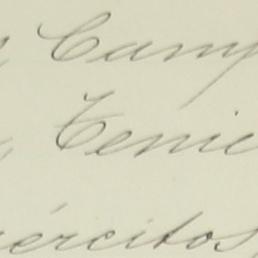 y Camp
y Tenie
ércitos,